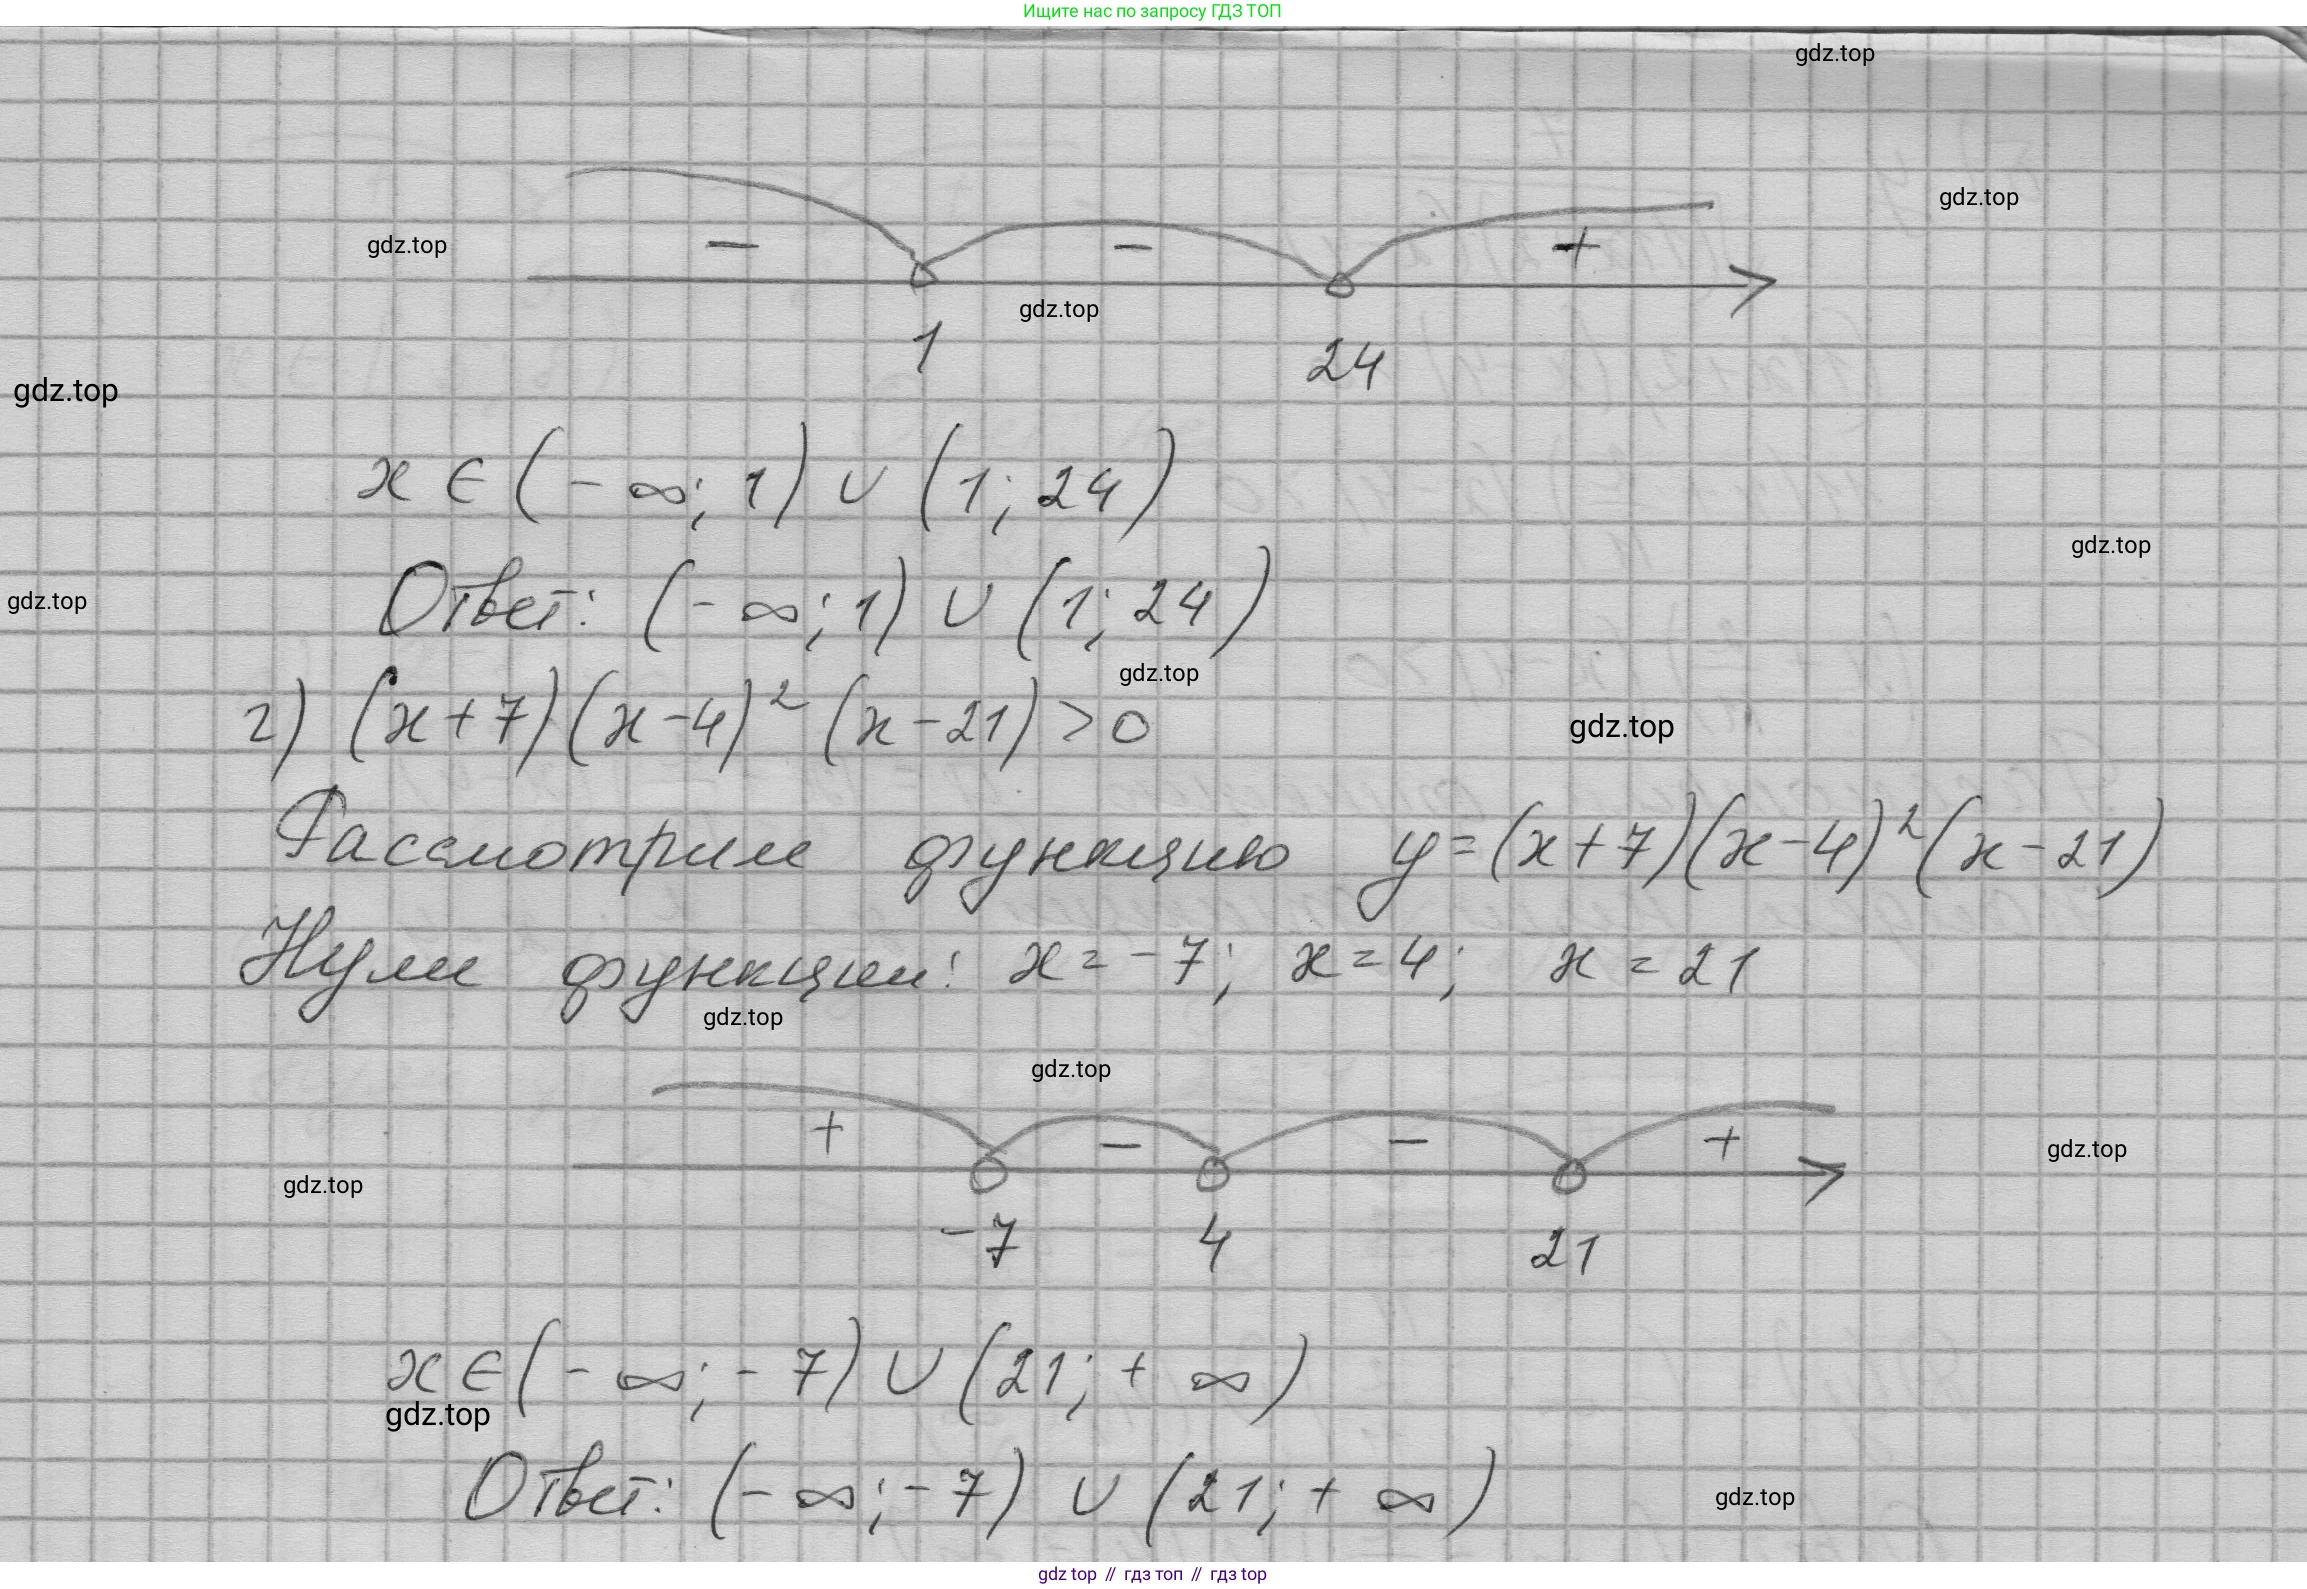 Ищите нас по запросу ГДЗ ТОП
gdz.top
gdz.top
gdz.top
− − +
gdz.top
1 24
gdz.top
x ∈ (− ∞; 1) ∪ (1; 24)
gdz.top
Ответ: (− ∞; 1) ∪ (1; 24)
gdz.top
gdz.top
г) (x + 7)(x − 4)² (x − 21) > 0
gdz.top
Рассмотрим функцию y = (x + 7)(x − 4)²(x − 21)
Нули функции: x = −7; x = 4; x = 21
gdz.top
gdz.top
+ − − +
gdz.top
gdz.top
−7 4 21
x ∈ (− ∞; − 7) ∪ (21; + ∞)
gdz.top
Ответ: (− ∞; − 7) ∪ (21; + ∞)
gdz.top
gdz top // гдз топ // гдз top